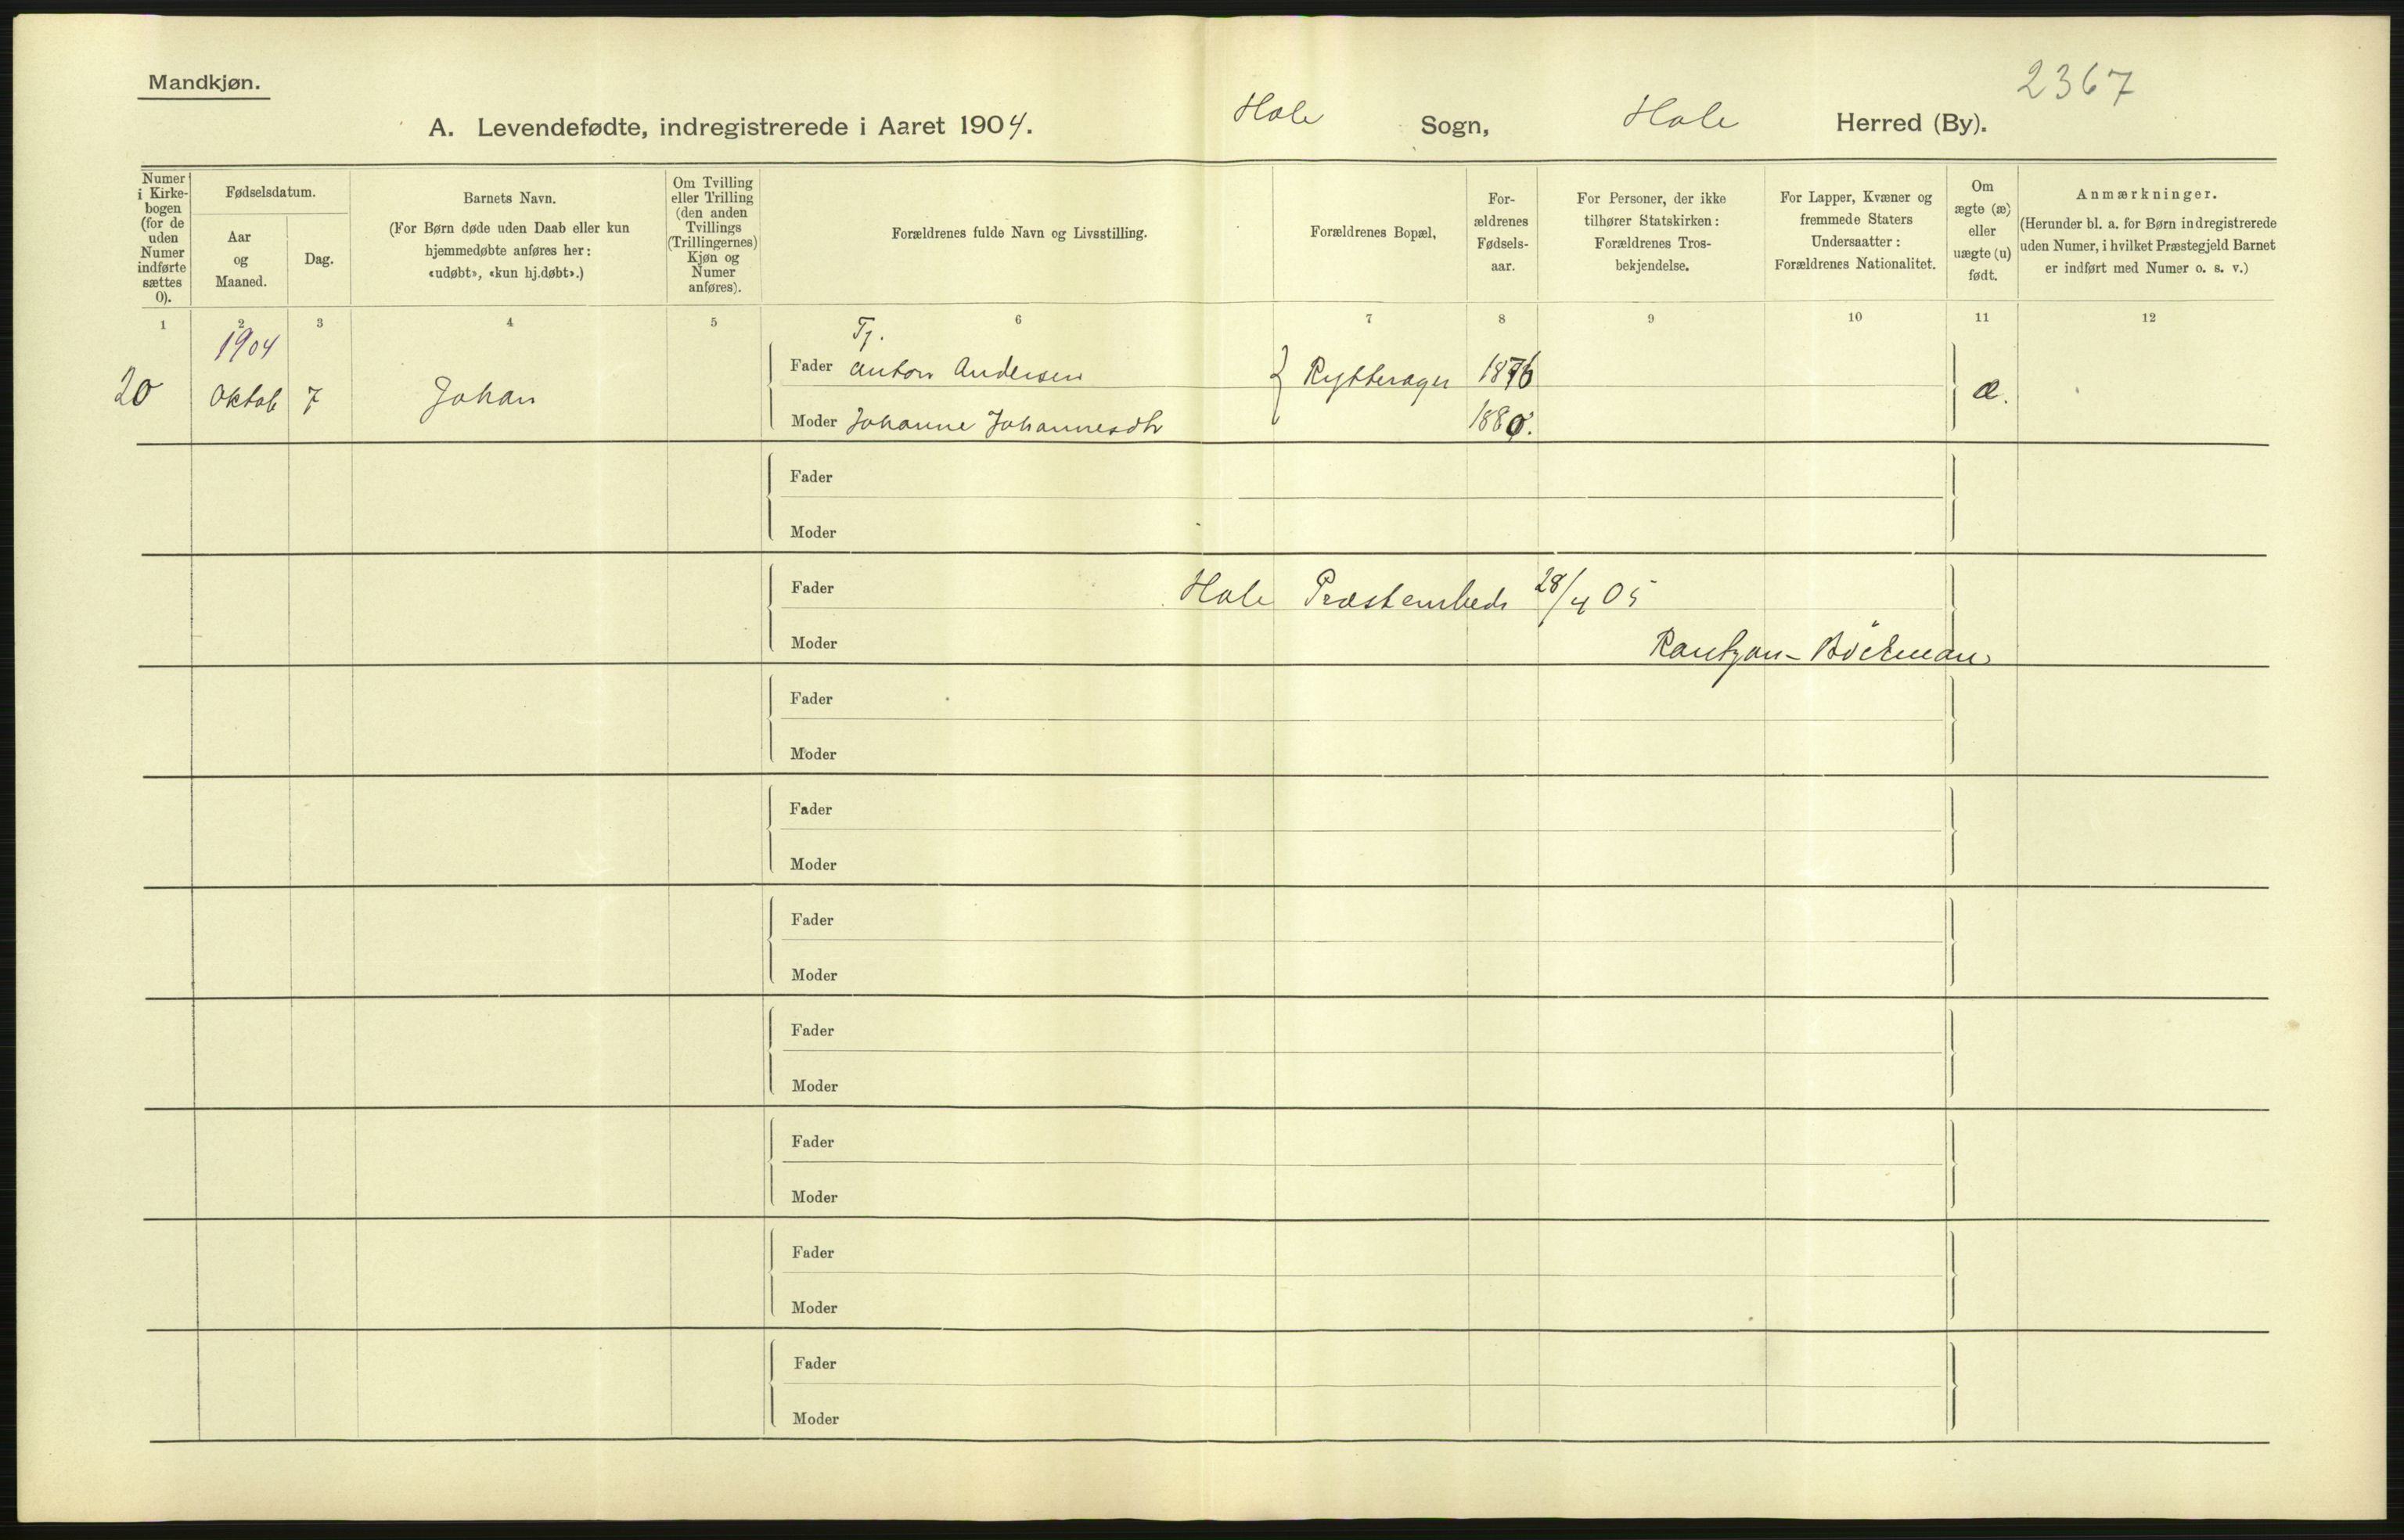 Mandkjøn.
2367
A. Levendefødte, indregistrerede i Aaret 1904. Hole Sogn, Hole Herred (By).
Numer i Kirkebogen (for de uden Numer indførte sættes 0).
Fødselsdatum.
Aar og Maaned.
Dag.
Barnets Navn.
(For Børn døde uden Daab eller kun hjemmedøbte anføres her: «udøbt», «kun hj.døbt».)
Om Tvilling eller Trilling (den anden Tvillings (Trillingernes) Kjøn og Numer anføres).
Forældrenes fulde Navn og Livsstilling.
Forældrenes Bopæl,
For-ældrenes Fødsels-aar.
For Personer, der ikke tilhører Statskirken: Forældrenes Tros-bekjendelse.
For Lapper, Kvæner og fremmede Staters Undersaatter: Forældrenes Nationalitet.
Om ægte (æ) eller uægte (u) født.
Anmærkninger.
(Herunder bl. a. for Børn indregistrerede uden Numer, i hvilket Præstegjeld Barnet er indført med Numer o. s. v.)
1 2 3 4 5 6 7 8 9 10 11 12
1904
Tj.
20 Oktob 7 Johan Fader Anton Andersen Rytterager 1876 æ.
Moder Johanne Johannesdtr 1880.
Fader
Moder
Fader Hole Præstembede 28/4 05
Moder Rantzau-Böckman
Fader
Moder
Fader
Moder
Fader
Moder
Fader
Moder
Fader
Moder
Fader
Moder
Fader
Moder